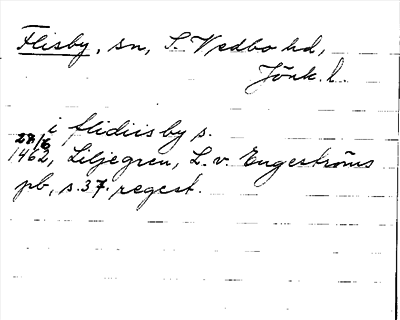 Flisby, sn, S. Vedbo hd,
Jönk. l.
i flidiisby s.
28/6
1462, Liljegren, L. v. Engeströms
pb, s. 37, regest.